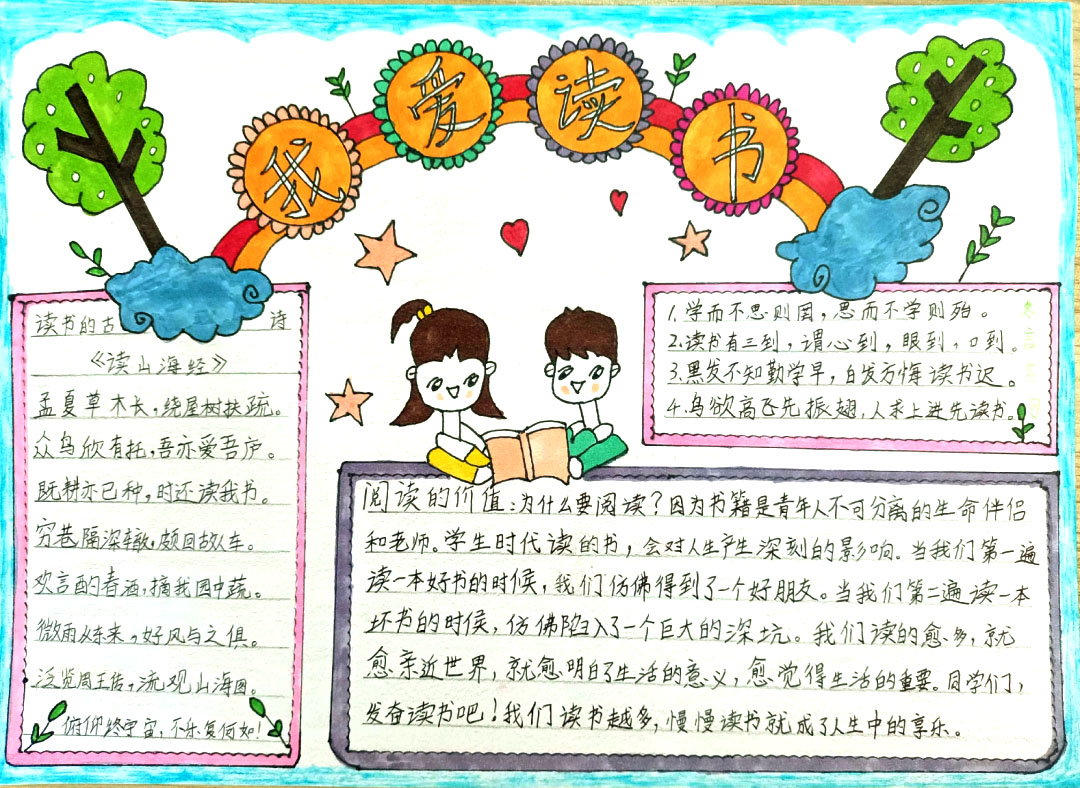 我爱读书
读书的古 诗
《读山海经》
孟夏草木长，绕屋树扶疏。
众鸟欣有托，吾亦爱吾庐。
既耕亦已种，时还读我书。
穷巷隔深辙，颇回故人车。
欢言酌春酒，摘我园中蔬。
微雨从东来，好风与之俱。
泛览周王传，流观山海图。
俯仰终宇宙，不乐复何如！
1.学而不思则罔，思而不学则殆。
2.读书有三到，谓心到，眼到，口到。
3.黑发不知勤学早，白发方悔读书迟。
4.鸟欲高飞先振翅，人求上进先读书。
阅读的价值：为什么要阅读？因为书籍是青年人不可分离的生命伴侣
和老师。学生时代读的书，会对人生产生深刻的影响。当我们第一遍
读一本好书的时候，我们仿佛得到了一个好朋友。当我们第二遍读一本
坏书的时候，仿佛陷入了一个巨大的深坑。我们读的愈多，就
愈亲近世界，就愈明白了生活的意义，愈觉得生活的重要。同学们，
发奋读书吧！我们读书越多，慢慢读书就成了人生中的享乐。